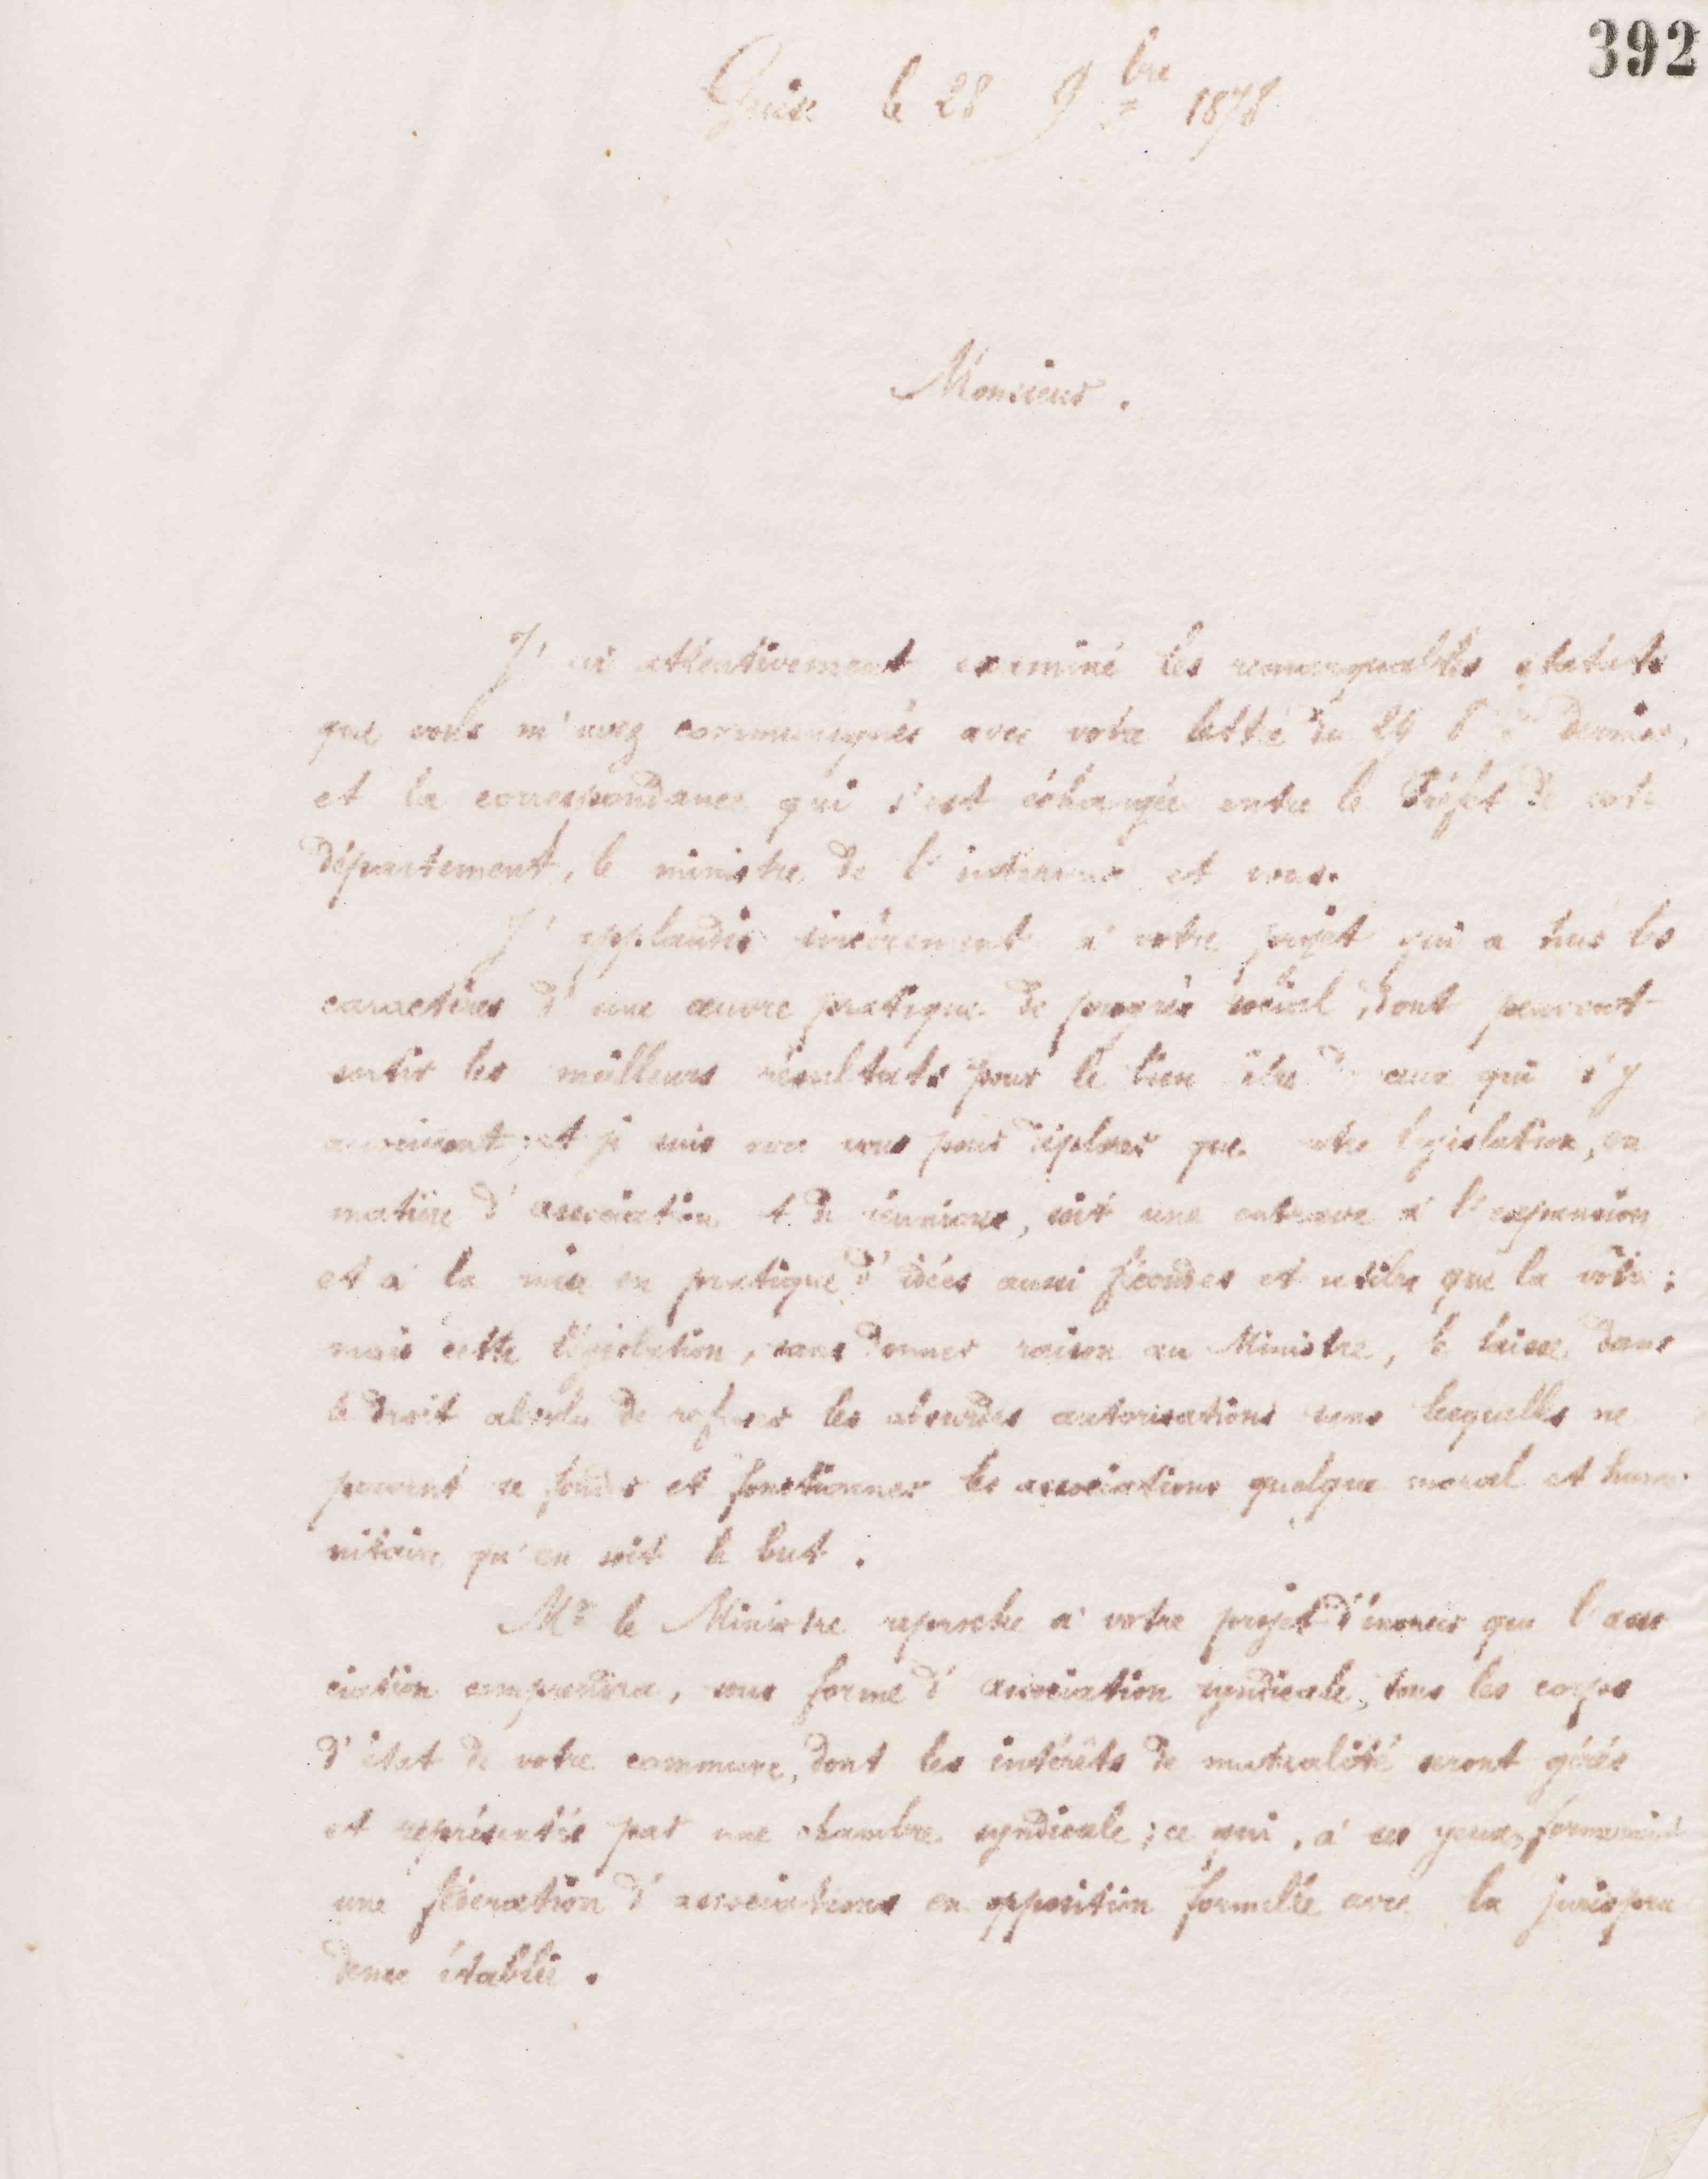 392
Guise le 28 9bre 1878
Monsieur.
J'ai attentivement examiné les remarquables statuts
que vous m'avez communiqués avec votre lettre du 29 dernier,
et la correspondance qui s'est échangée entre le Préfet de votre
département, le ministre de l'intérieur et vous.
J'applaudis sincèrement à votre projet qui a tous les
caractères d'une œuvre pratique de progrès social, dont peuvent
sortir les meilleurs résultats pour le bien être de ceux qui s'y
associeront; et je suis avec vous pour déplorer que notre législation, en
matière d'association et de réunions, soit une entrave à l'expansion
et à la mise en pratique d'idées aussi fécondes et utiles que la vôtre;
mais cette législation, sans donner raison au Ministre, le laisse dans
le droit absolu de refuser les absurdes autorisations sans lesquelles ne
peuvent se fonder et fonctionner les associations quelque moral et huma
nitaire qu'en soit le but.
Mr le Ministre reproche à votre projet d'énoncer que l'asso
ciation comprendra, sous forme d'association syndicale, tous les corps
d'état de votre commune, dont les intérêts de mutualité seront gérés
et représentés par une chambre syndicale; ce qui, à ses yeux, formerait
une fédération d'associations en opposition formelle avec la jurispru
dence établie.